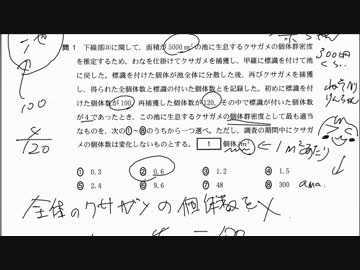 問1 下線部(a)に関して，面積が5000 m²の池に生息するクサガメの個体群密度
を推定するため，わなを仕掛けてクサガメを捕獲し，甲羅に標識を付けて池
に戻した。標識を付けた個体が池全体に分散した後，再びクサガメを捕獲
し，得られた全個体数と標識の付いた個体数とを記録した。初めに標識を付
けた個体数が100，再捕獲した個体数が120，その中で標識が付いた個体数
が4であったとき，このクサガメの個体群密度として最も適当
なものを，次の①～⑧のうちから一つ選べ。ただし，調査の期間中にクサガ
メの個体数は変化しないものとする。 1 個体/m²
1m²あたり
① 0.3 ② 0.6 ③ 1.2 ④ 1.5
⑤ 2.4 ⑥ 9.6 ⑦ 48 ⑧ 300
ana
100
4
120
300円
全体のクサガメの個体数をX